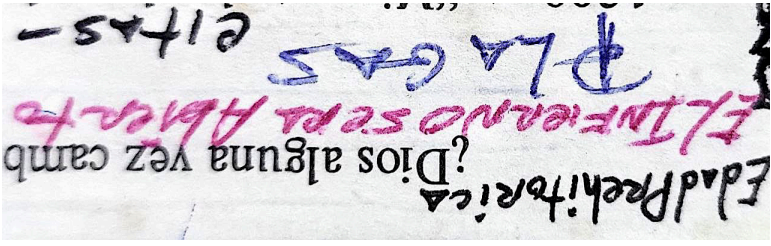 Edad Prehitorica
¿Dios alguna vez camb
EL INFIERNO SERA Abierto
PLAGAS
citas -